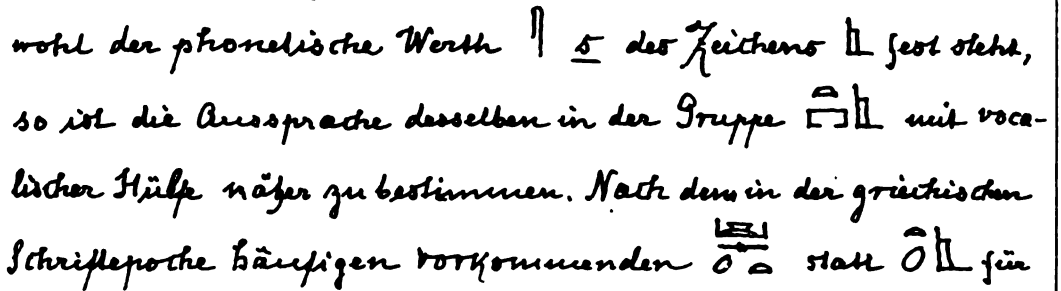 wohl der phonetische Werth 𓋴 s des Zeichens 𓊨 fest steht,
so ist die Aussprache desselben in der Gruppe 𓏏𓉐𓊨 mit voca-
lischer Hülfe näher zu bestimmen. Nach dem in der griechischen
Schriftepoche häufigen vorkommenden statt 𓏏𓆇𓊨 für